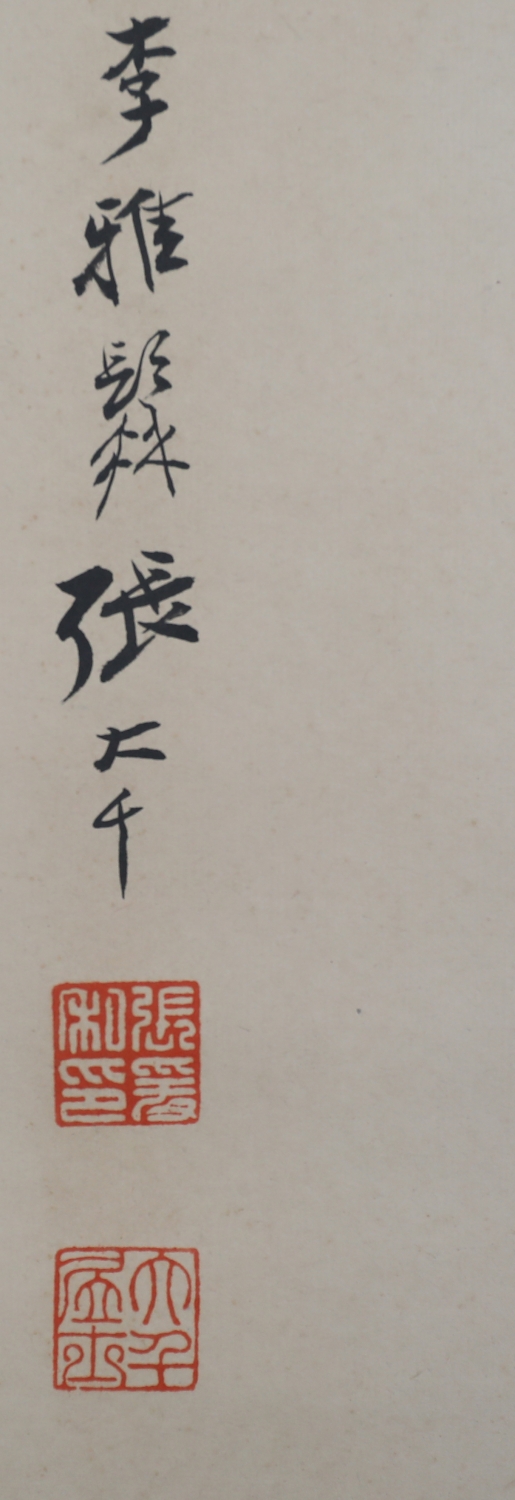 李雅張大千
張爰
私印
大千
居士